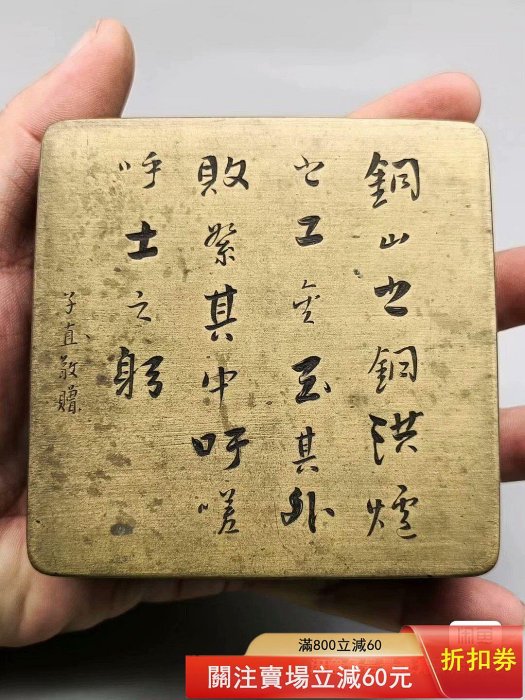 銅山之銅洪爐
之工金玉其外
敗絮其中吁嗟
呼士之躬
子直敬贈
滿800立減60
關注賣場立減60元
折扣券